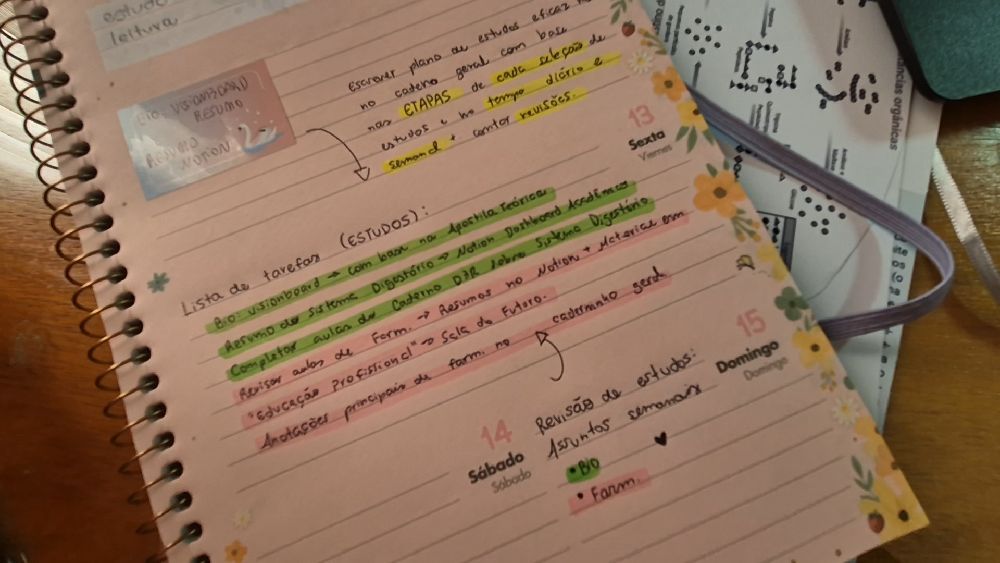 estudo
leitura
BIO: VISIONBOARD
RESUMO
RESUMO
NOTION
escrever plano de estudos eficaz
no caderno geral com base
nas ETAPAS de cada seleção de
estudos e no tempo diário e
semanal + contar revisões.
13
Sexta
Viernes
Lista de tarefas (ESTUDOS):
Bio: visionboard → com base na Apostila Teórica
Resumo do sistema Digestório → Notion Dashboard Acadêmico
Completar aulas do Caderno D2R sobre Sistema Digestório
Revisar aulas de Farm. → Resumos no Notion + Materiais em
"Educação Profissional" → Sala do Futuro.
Anotações principais de farm. no caderninho geral
14
Sábado
Sábado
Revisão de estudos:
Assuntos semanais
• BIO
• Farm.
15
Domingo
Domingo
âncias orgânicas